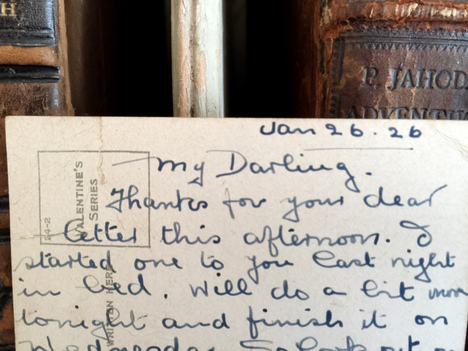 H
P. JAHODA
ADVENTU
Jan 26. 26
My Darling.
Thanks for your dear
letter this afternoon. I
started one to you last night
in bed. Will do a bit more
tonight and finish it on
Wednesday. So look out
VALENTINE'S
SERIES
24-2